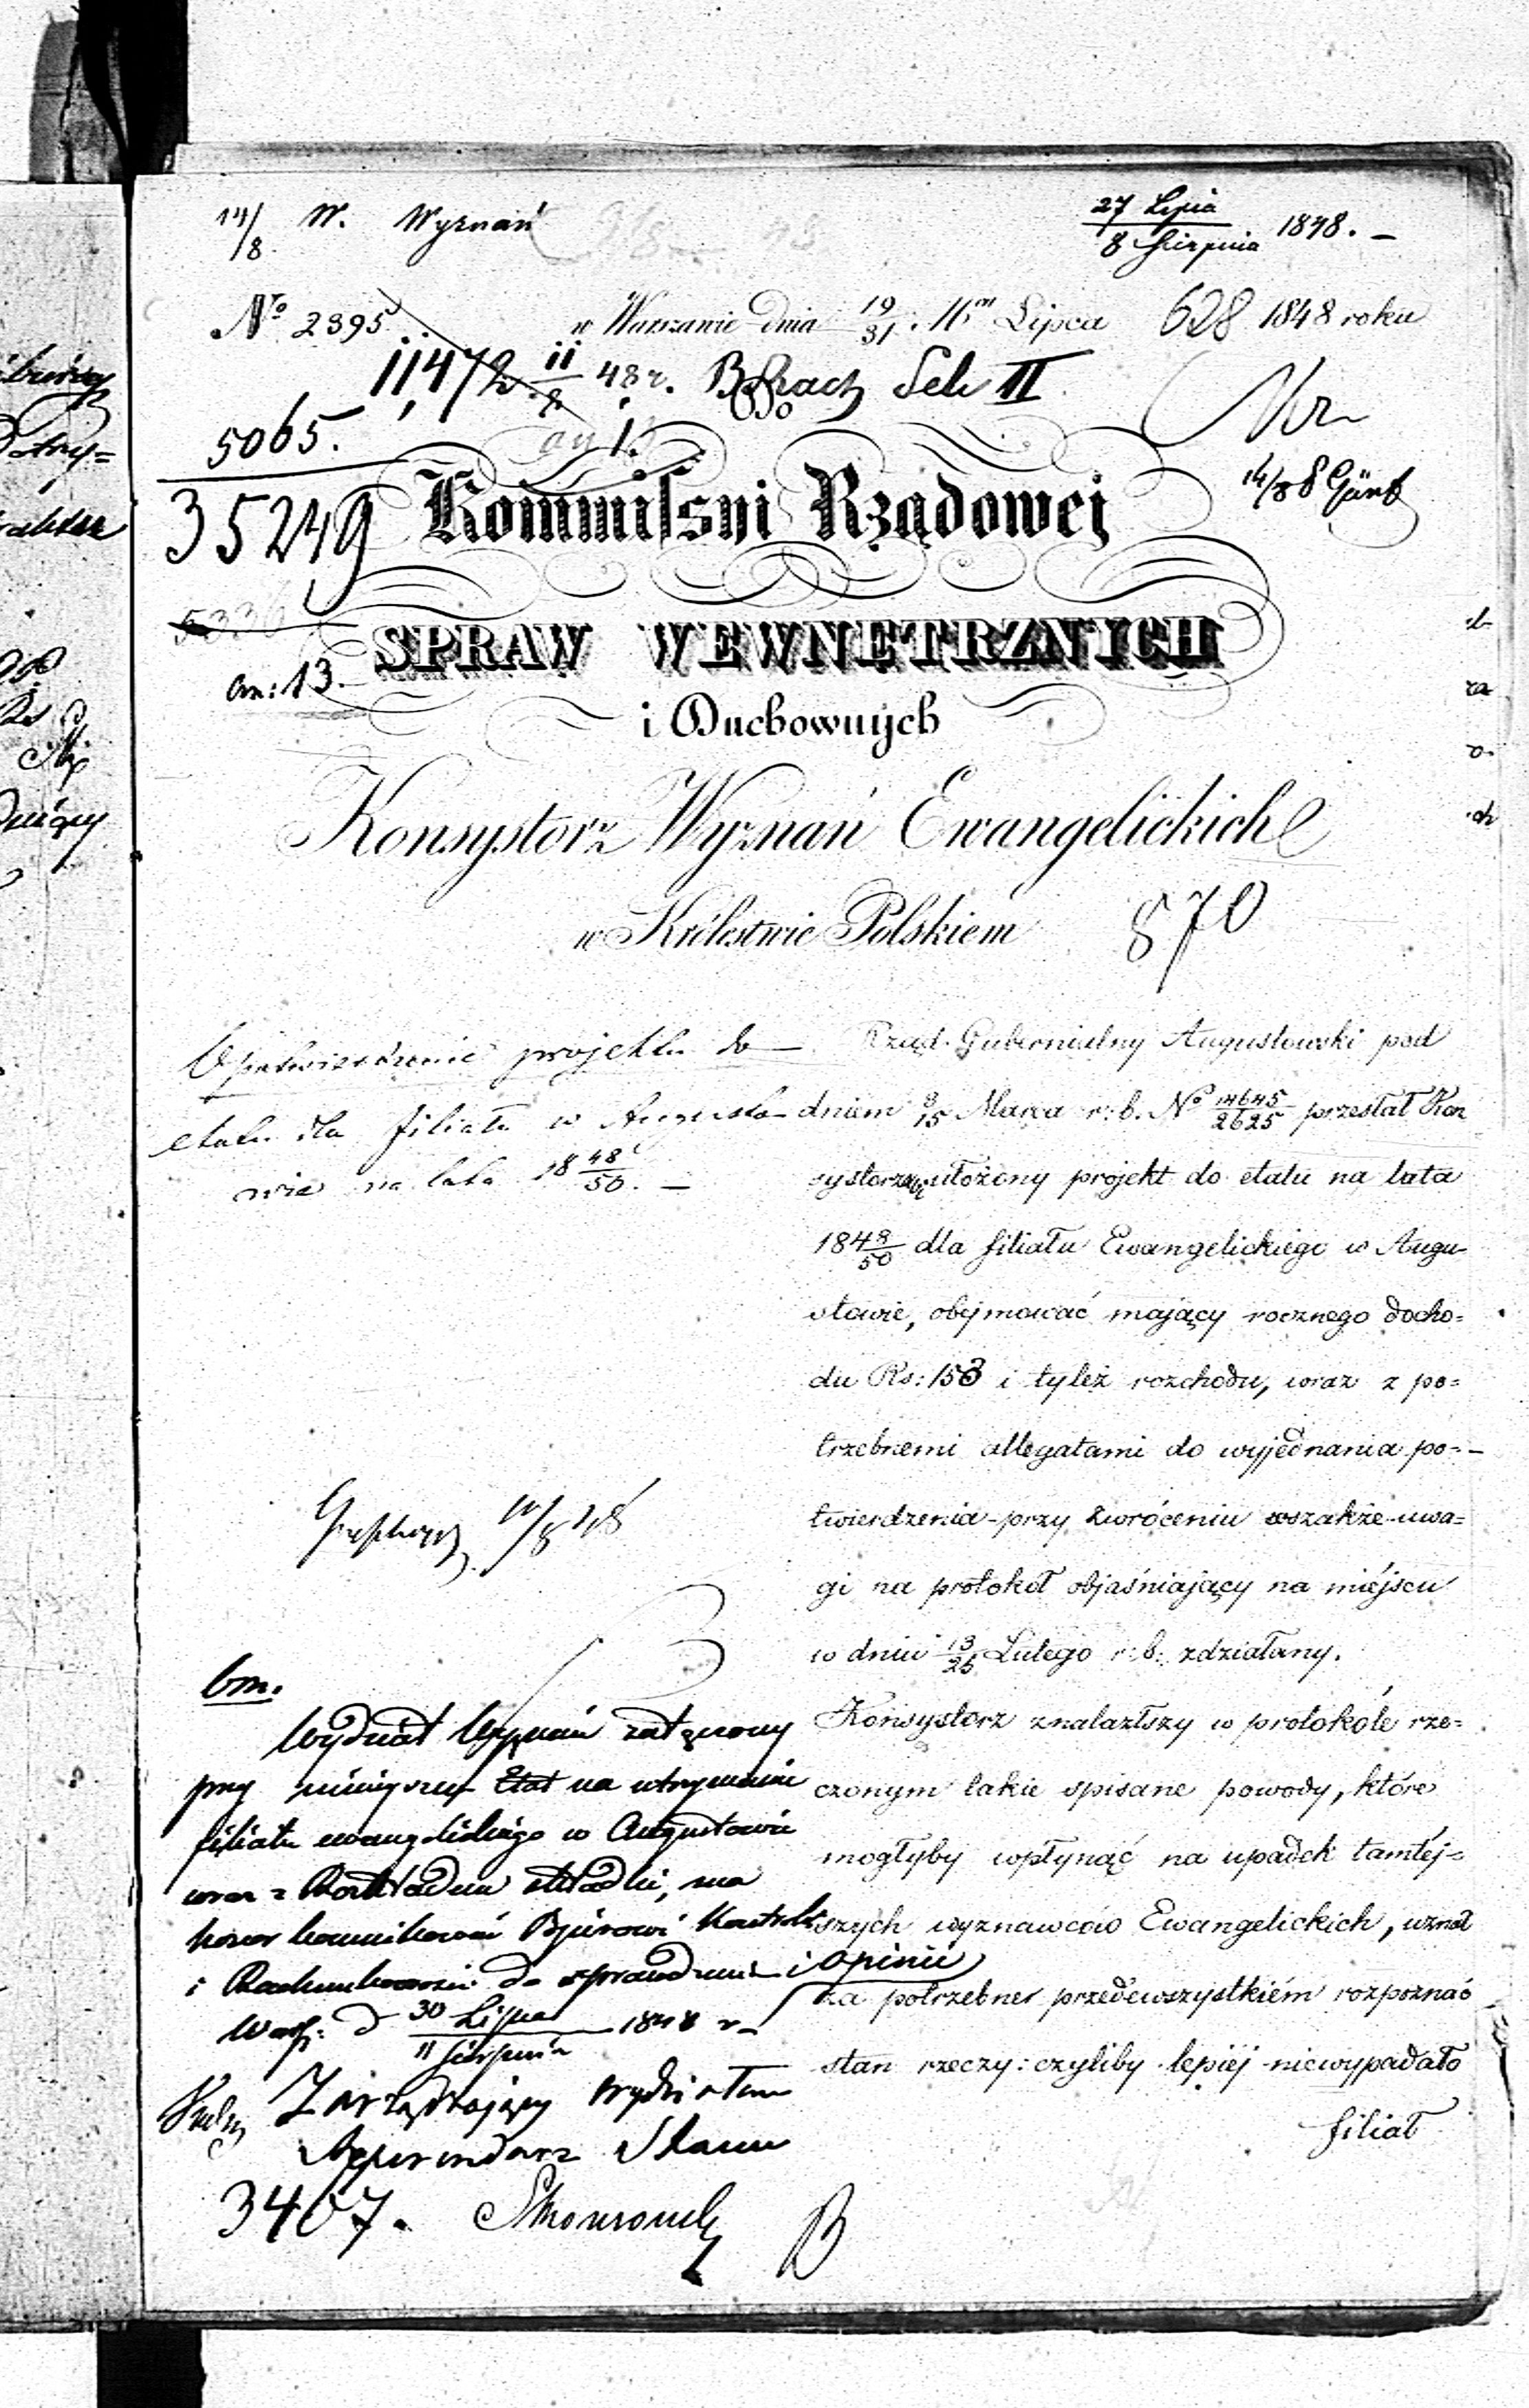 14/8. W. Wyznań
27 Lipca / 8 Sierpnia 1848. –
No 2395
w Warszawie dnia 19/31 Lipca 1848 roku
628
11472 11/8 48 r. Sek II
5065.
14/8
35249
Kommissyi Rządowej
5336
SPRAW WEWNĘTRZNYCH
an: 13.
i Duchownych
Konsystorz Wyznań Ewangelickich
w Królestwie Polskiem
870
O potwierdzenie projektu do
etatu dla filiału w Augusto-
wie na lata 18 48/50. –
Rząd Gubernialny Augustowski pod
dniem 3/15 Marca r. b. No 14645/2625 przesłał Kon
systorzowi ułożony projekt do etatu na lata
18 48/50 dla filiału Ewangelickiego w Augu-
stowie, obejmować mający rocznego docho=
du Rs: 153 i tyleż rozchodu, wraz z po=
trzebnemi allegatami do wyjednania po=
twierdzenia – przy zwróceniu wszakże uwa=
gi na protokół objaśniający na miéjscu
w dniu 13/25 Lutego r. b. zdziałany.
Konsystorz znalazłszy w protokóle rze=
czonym takie spisane powody, które
mogłyby wpłynąć na upadek tamtéj=
szych wyznawców Ewangelickich, uznał
za potrzebne przedewszystkiém rozpoznać
stan rzeczy: czyliby lepiéj niewypadało
filiał
10/8 48
bm.
Wydział Wyznań załączony
przy niniejszem Etat na utrzymanie
filiału ewangelickiego w Augustowie
wraz z Rozkładem składki, ma
honor komunikować Bjurowi Kontroli
i Rachunkowości do sprawdzenia i opinii
Warsz: d 30 Lipca / 11 Sierpnia 1848 r.
Zarządzający Wydziałem
Referendarz Stanu
3407.